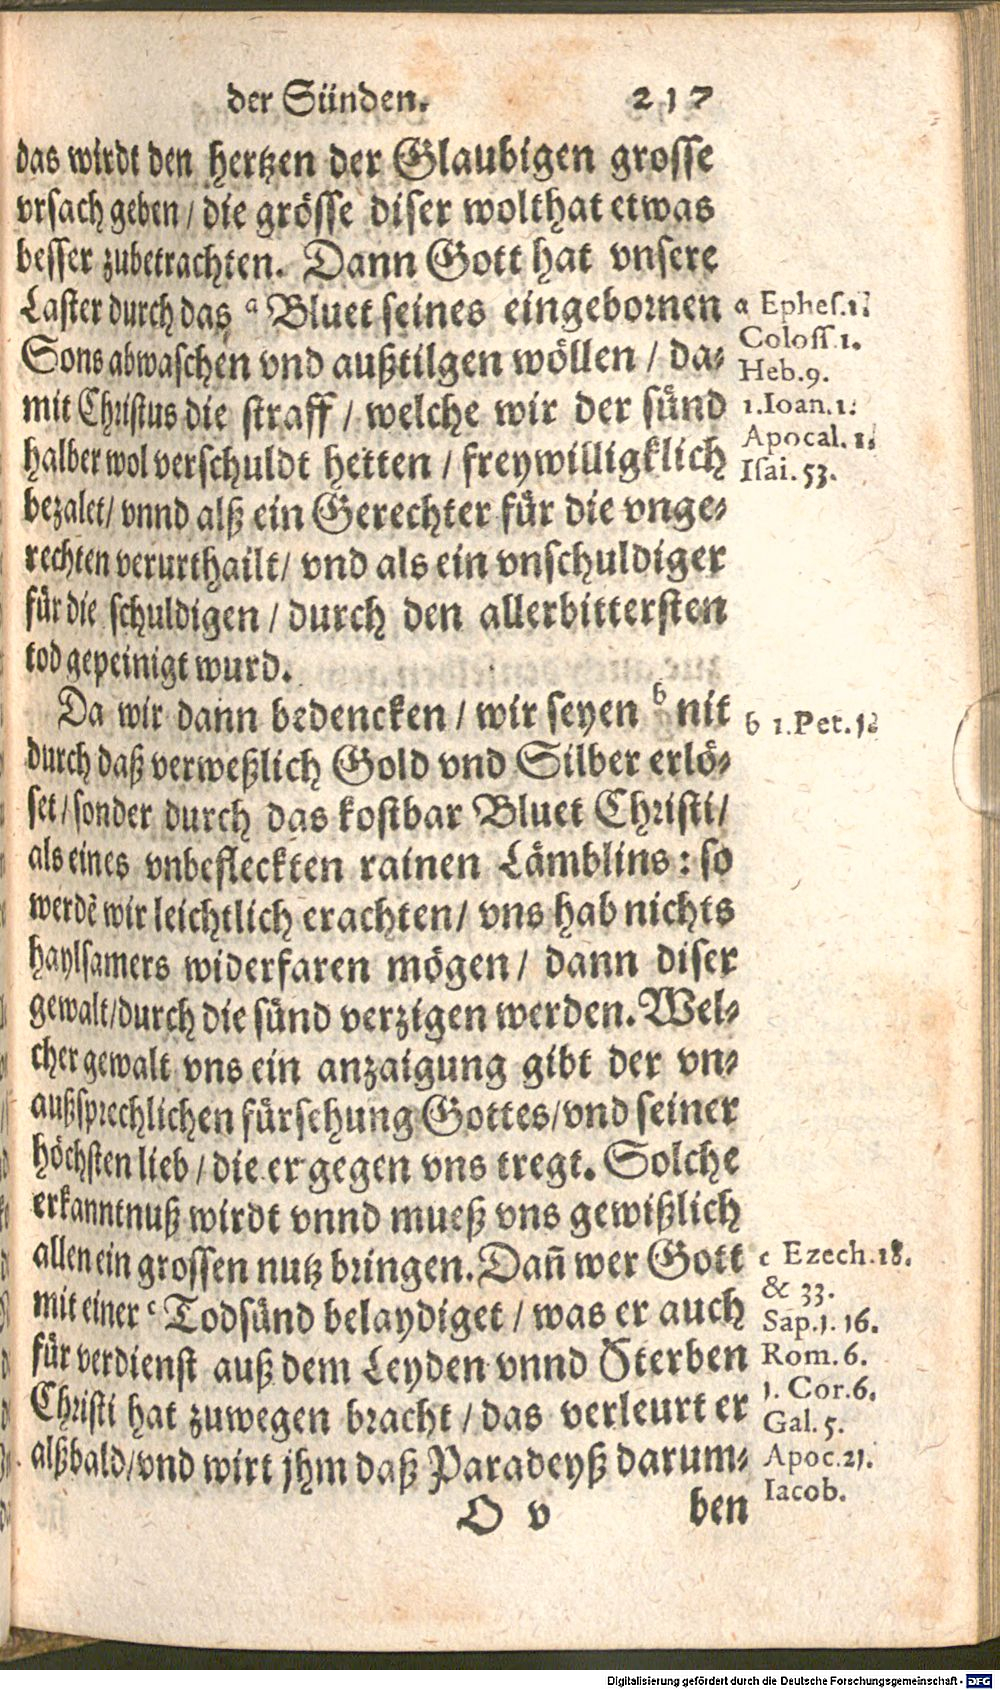 der Sünden. 217
das wirdt den hertzen der Glaubigen grosse
vrsach geben / die grösse diser wolthat etwas
besser zubetrachten. Dann Gott hat vnsere
Laster durch das a Bluet seines eingebornen
Sons abwaschen vnd außtilgen wöllen / da-
mit Christus die straff / welche wir der sünd
halber wol verschuldt hetten / freywilligklich
bezalet / vnnd alß ein Gerechter für die vnge-
rechten verurthailt / vnd als ein vnschuldiger
für die schuldigen / durch den allerbittersten
tod gepeinigt wurd.
Da wir dann bedencken / wir seyen b nit
durch daß verweßlich Gold vnd Silber erlö-
set / sonder durch das kostbar Bluet Christi /
als eines vnbefleckten rainen Lämblins : so
werdē wir leichtlich erachten / vns hab nichts
haylsamers widerfaren mögen / dann diser
gewalt / durch die sünd verzigen werden. Wel-
cher gewalt vns ein anzaigung gibt der vn-
außsprechlichen fürsehung Gottes / vnd seiner
höchsten lieb / die er gegen vns tregt. Solche
erkanntnuß wirdt vnnd mueß vns gewißlich
allen ein grossen nutz bringen. Dañ wer Gott
mit einer c Todsünd belaydiget / was er auch
für verdienst auß dem Leyden vnnd Sterben
Christi hat zuwegen bracht / das verleurt er
alßbald / vnd wirt jhm daß Paradeyß darum-
O v ben
a Ephes.1.
Coloss.1.
Heb.9.
1.Ioan.1.
Apocal.1.
Isai.53.
b 1.Pet.1.
c Ezech.18.
& 33.
Sap.1.16.
Rom.6.
1.Cor.6.
Gal.5.
Apoc.21.
Iacob.
Digitalisierung gefördert durch die Deutsche Forschungsgemeinschaft - DFG